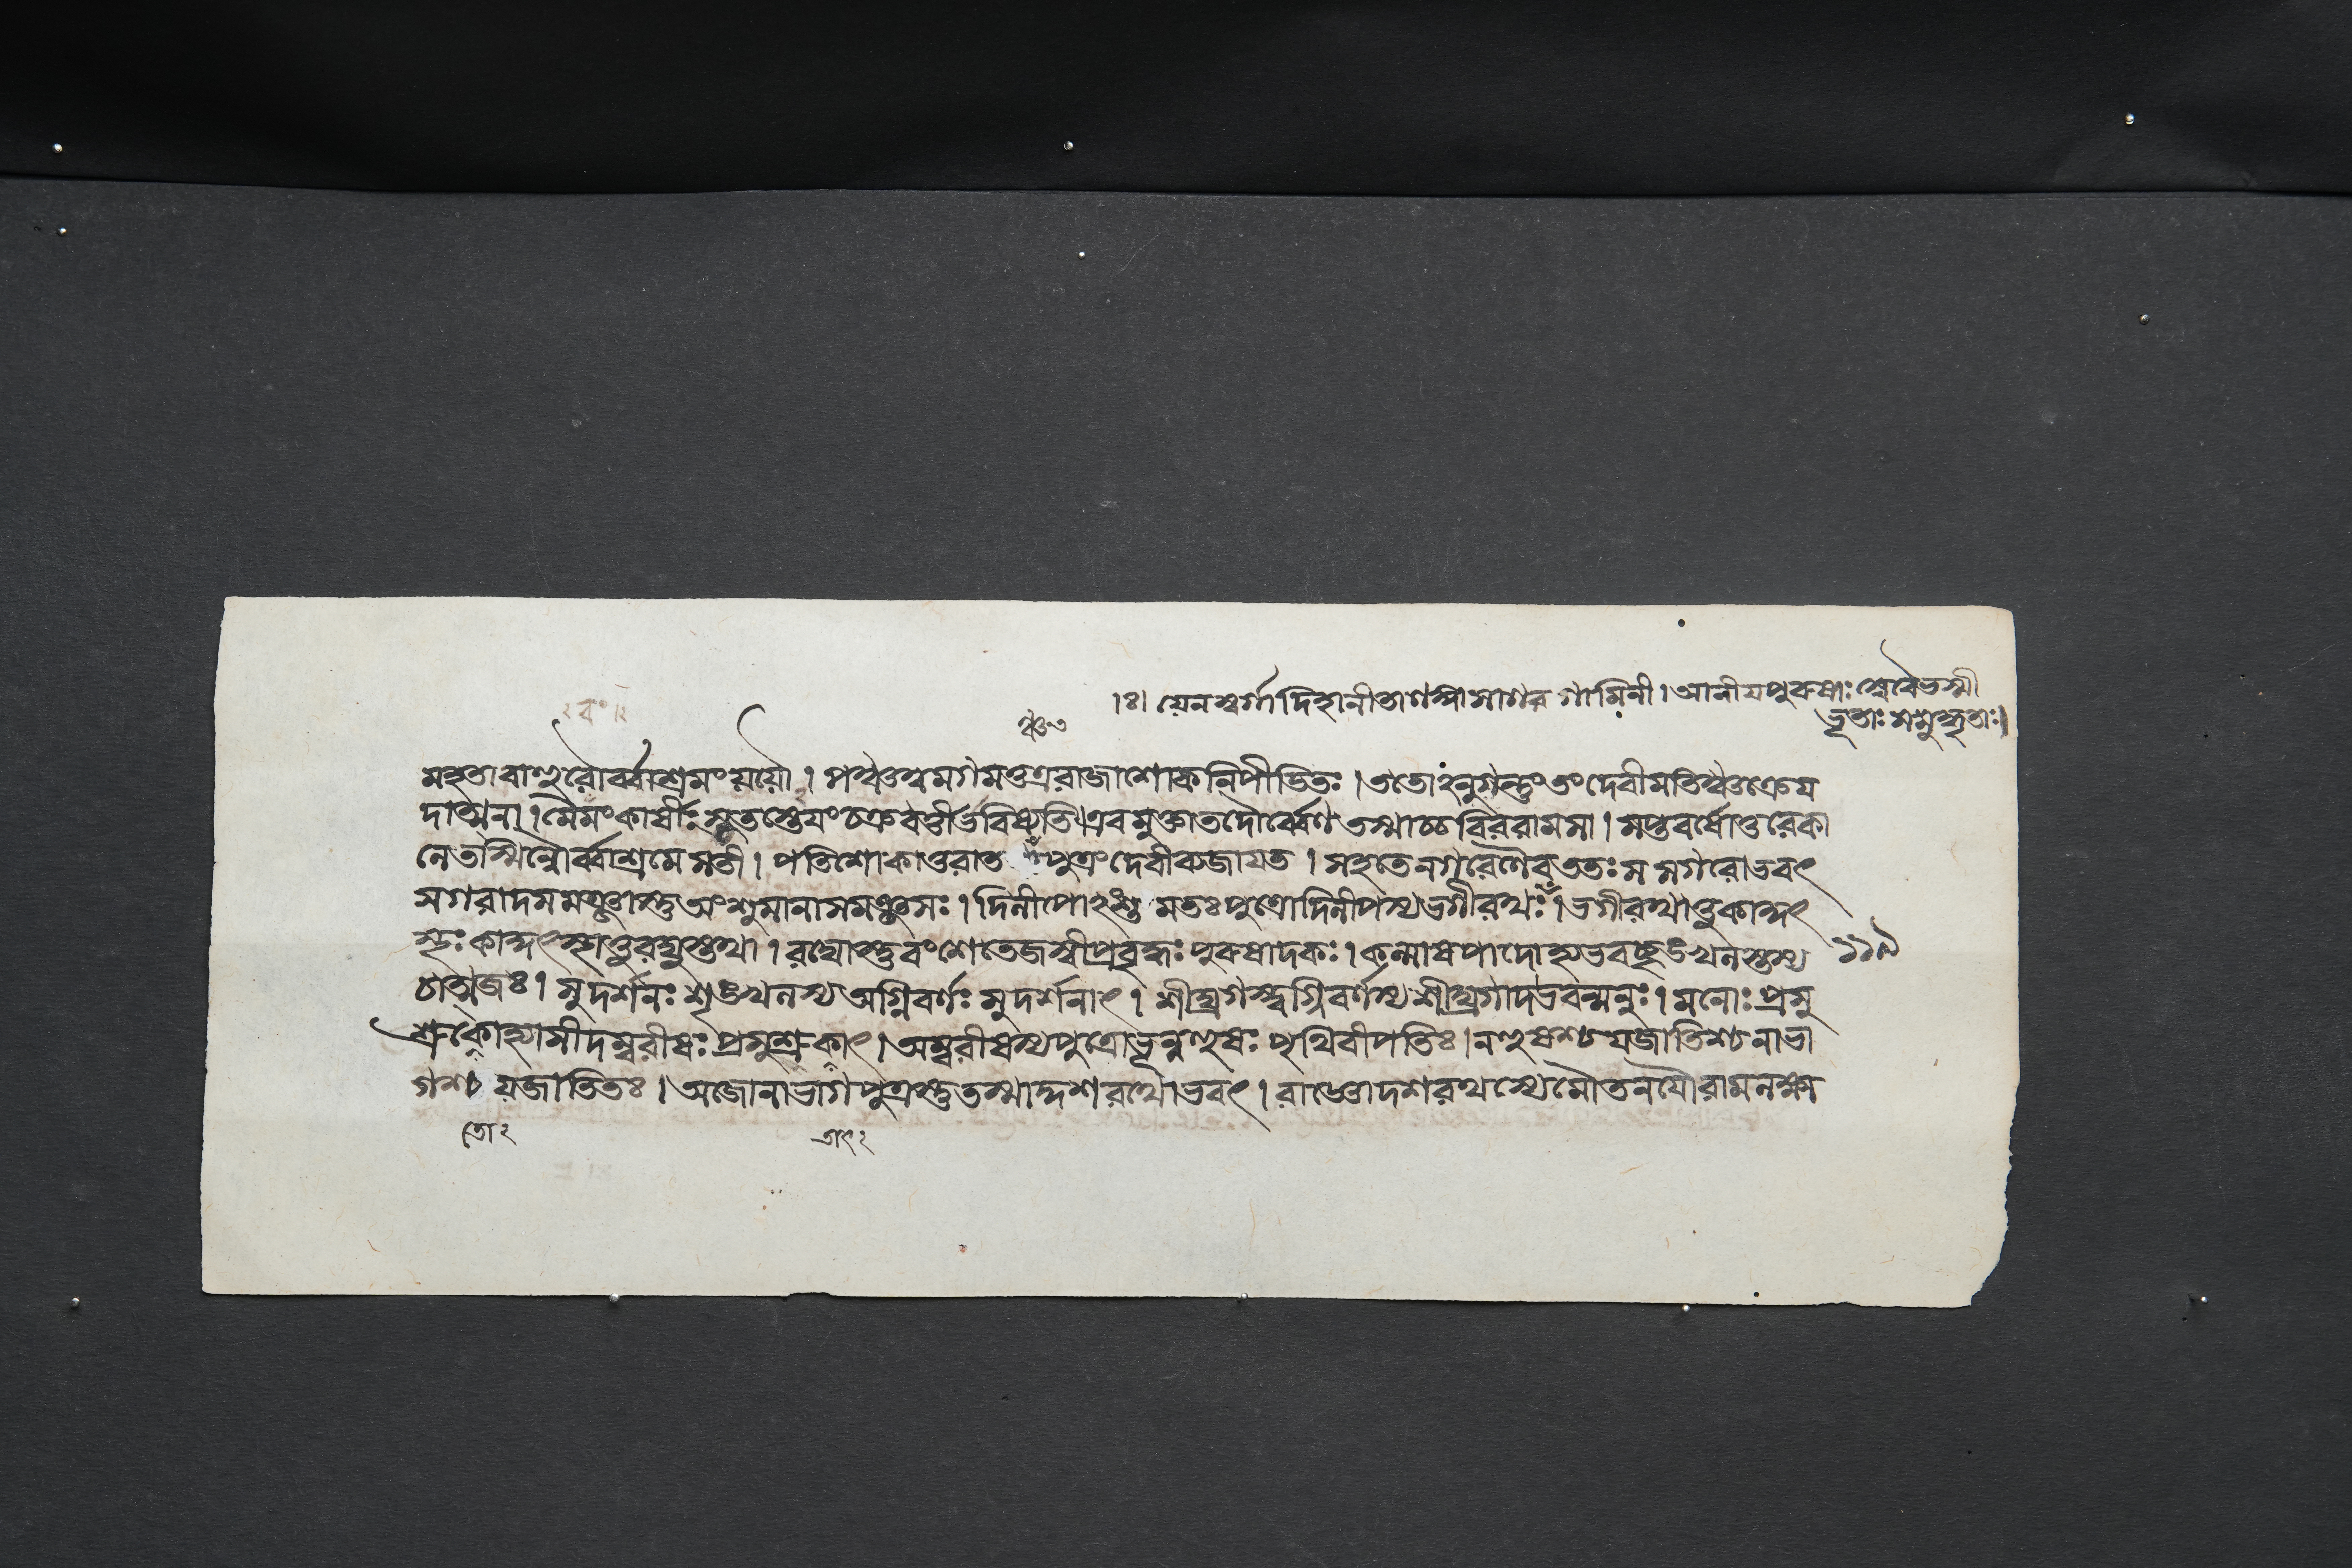 ।ঃ। যেনস্বর্গাদিহানীতা গামিনী। আনীযপুরুষাঃ ভস্মী
ভূতাঃ সমুদ্ধৃতাঃ।
মহতাবাহুরৌর্ব্বাশ্রমংযযৌ। পঞ্চত্বমগমত্তত্ররাজাশোকনিপীডিতঃ। ততোঽনুগন্তুংতংদেবীমতিঞ্চক্রেয
দাত্মনা। মৈমংকার্ষীঃসুতস্তেযংচক্রবর্ত্তীর্ভবিষ্যতি।এবমুক্তাতদৌর্ব্বেণতস্মাচ্চবিররামসা। সপ্তবর্ষোত্তরেকা
লেতস্মিন্নৌর্ব্বাশ্রমেসতী। পতিশোকাতুরাত পুত্রংদেবীব্যজাযত। সহতেনগরেণৈবততঃসসগরোভবৎ
সগরাদসমঞ্জাস্তুঅংশুমানাসমঞ্জসঃ। দিলীপোংশুমতঃপুত্রোদিলীপস্যভগীরথঃ। ভগীরথাত্তুকাকুৎ
স্থঃকাকুৎস্থাত্তুরঘুস্তথা। রঘোস্তুবংশেতেজস্বীপ্রবৃদ্ধঃপুরুষাদকঃ। কল্মাষপাদোহ্যভবচ্ছৃঙ্খনস্তস্য ১১৯
চাত্মজঃ। সুদর্শনঃশৃঙ্খনস্যঅগ্নিবর্ণঃসুদর্শনাৎ। শীঘ্রগস্ত্বগ্নিবর্ণস্যশীঘ্রগাদভবন্মনুঃ। মনোঃপ্রসু
শ্রুকোহ্যাসীদম্বরীষঃপ্রসুশ্রুকাৎ। অম্বরীষস্যপুত্রোভূন্নহুষঃপৃথিবীপতিঃ। নহুষশ্চযজাতিশ্চনাভা
গশ্চযজাতিতঃ। অজোনাভাগপুত্রস্তুতস্মাদ্দশরথোভবৎ। রাজ্ঞোদশরথস্যেমৌতনযৌরামলক্ষ্ম
তো২ তাৎ২